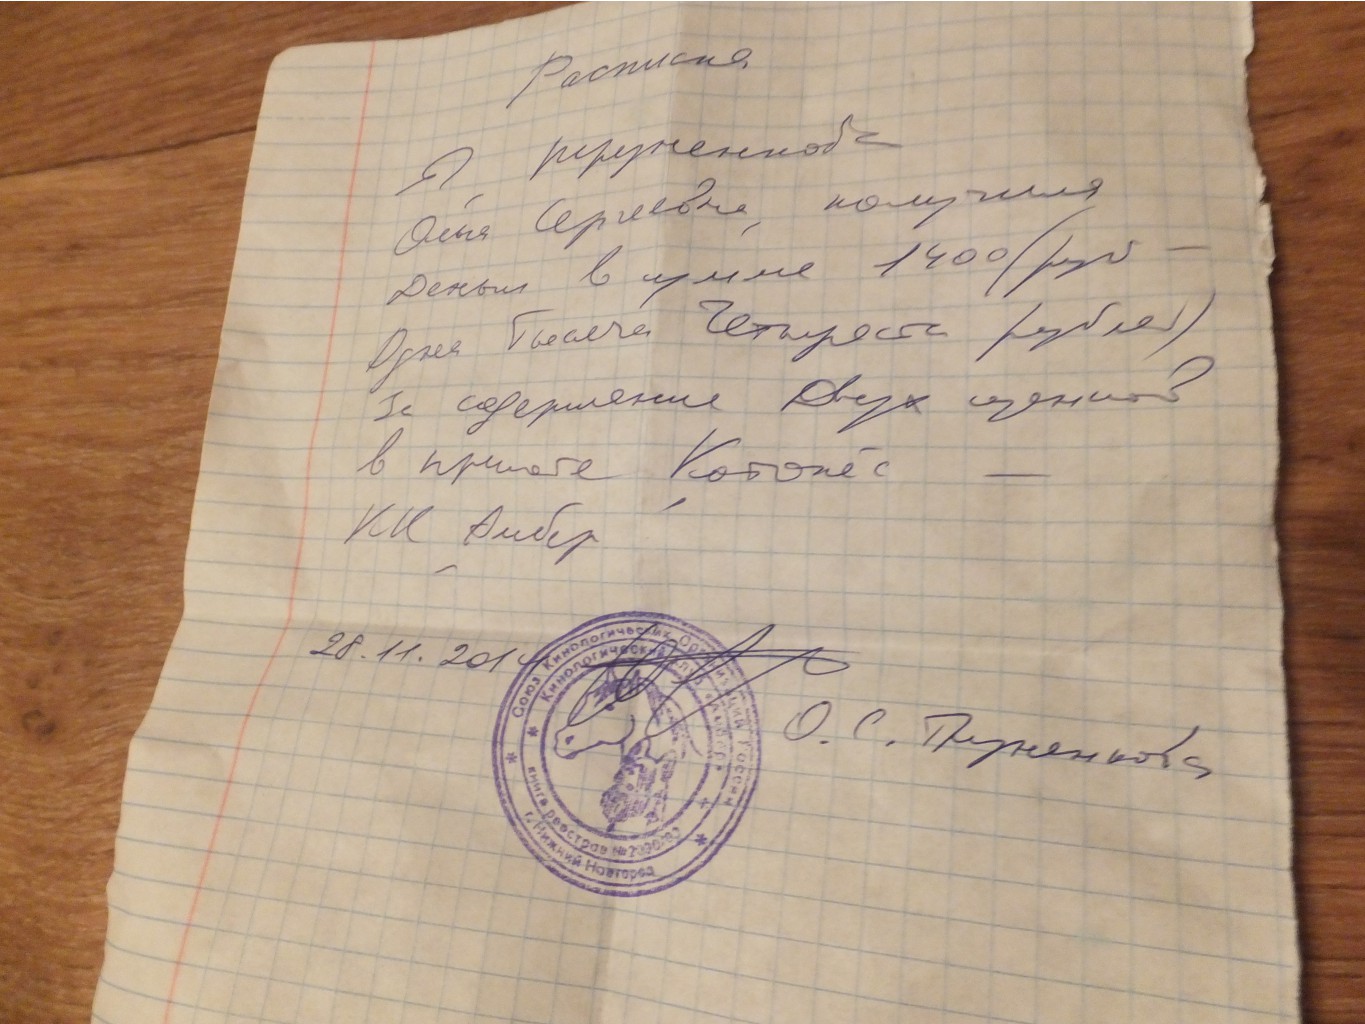 Расписка
Я Пруненкова
Олья Сергеевна, получила
деньги в сумме 1400 (руб —
Одна Тысяча Четыреста рублей)
За содержание Двух щенков
в приюте Котопёс —
КК Амбер
28.11.2014
О. С. Пруненкова
Союз Кинологических Организаций России
Кинологический клуб "Амбер"
книга реестров №
г. Нижний Новгород